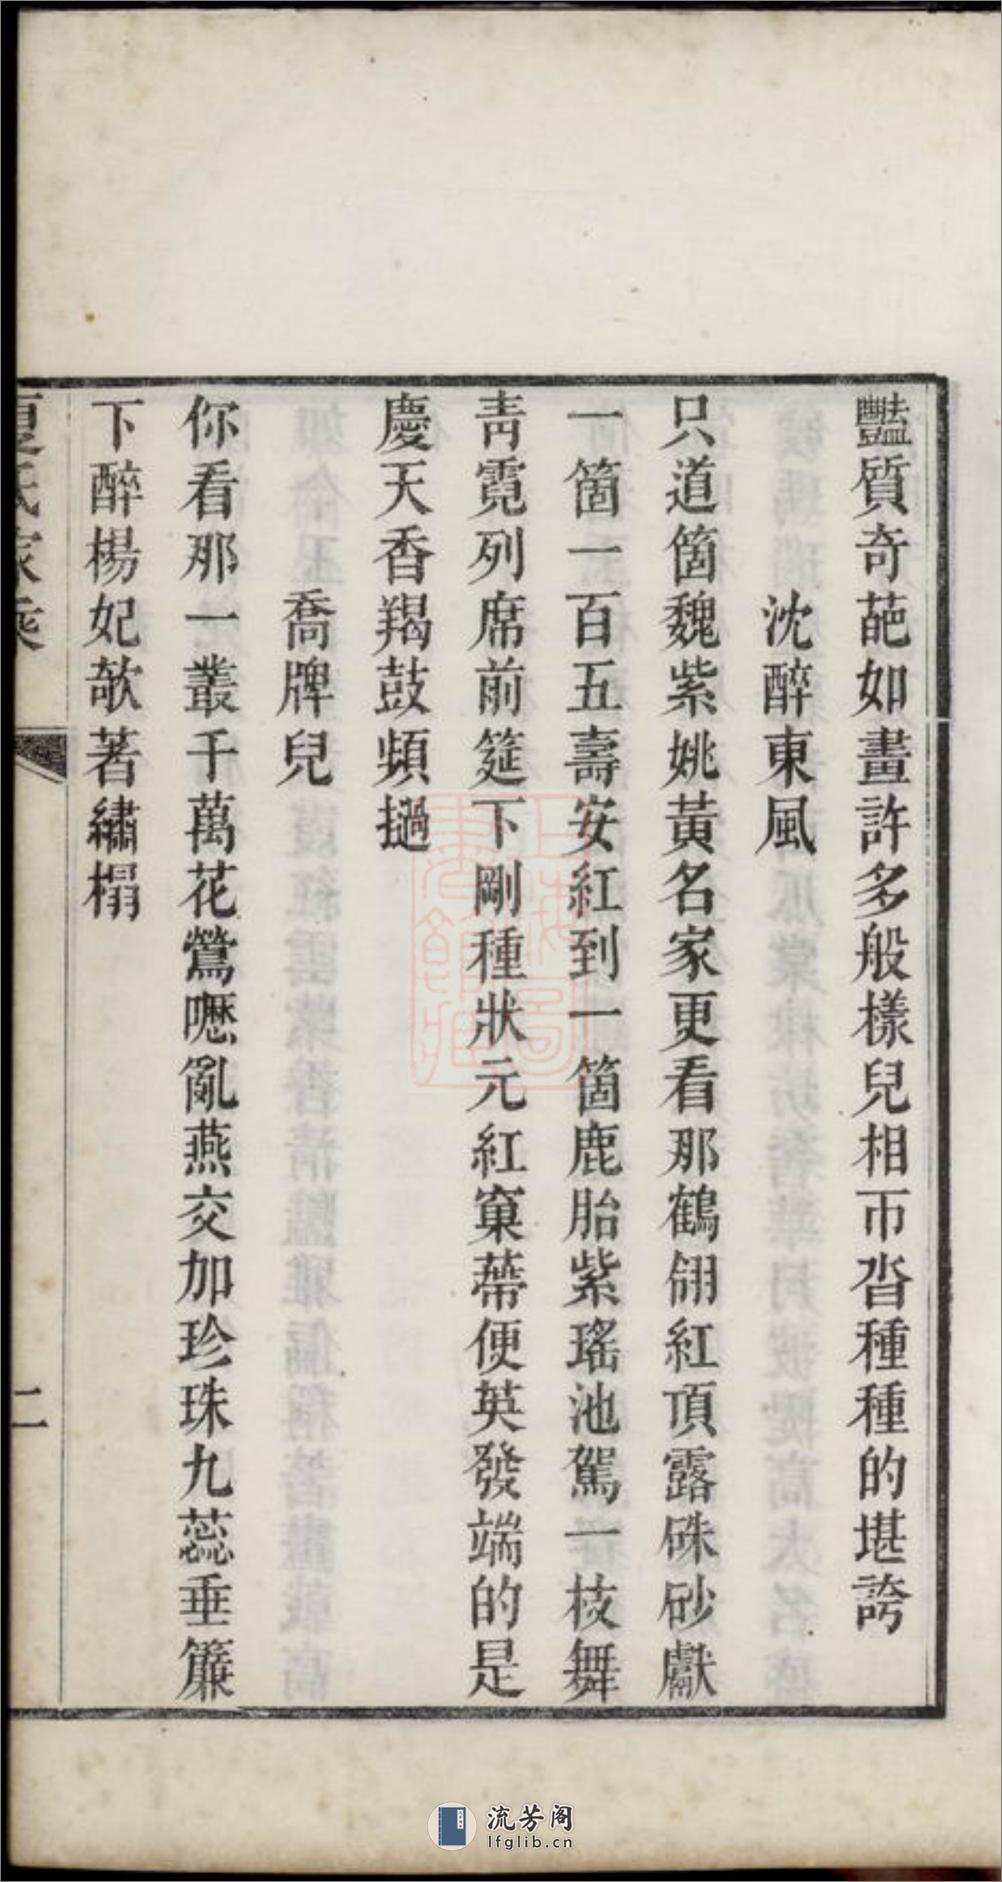 豔質奇葩如畫許多般樣兒相帀沓種種的堪誇
沈醉東風
只道箇魏紫姚黃名家更看那鶴翎紅頂露硃砂獻
一箇一百五壽安紅到一箇鹿胎紫瑤池駕一枝舞
靑霓列席前筵下剛種狀元紅窠蔕便英發端的是
慶天香羯鼓頻撾
喬牌兒
你看那一叢千萬花鶯嚦亂燕交加珍珠九蕊垂簾
下醉楊妃欹著繡榻
夏氏家乘
二
上海圖書館藏
流芳阁
lfglib.cn